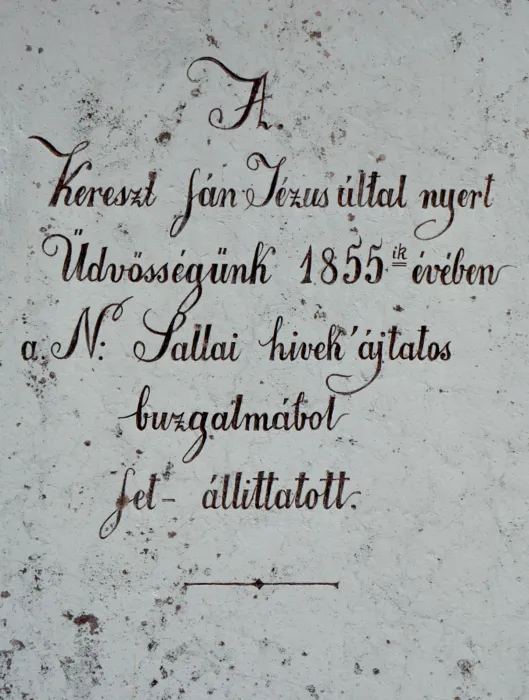 A.
Kereszt fán Jézus által nyert
Üdvösségünk 1855ik évében
a N: Sallai hivek' ájtatos
buzgalmából
fel- állittatott.